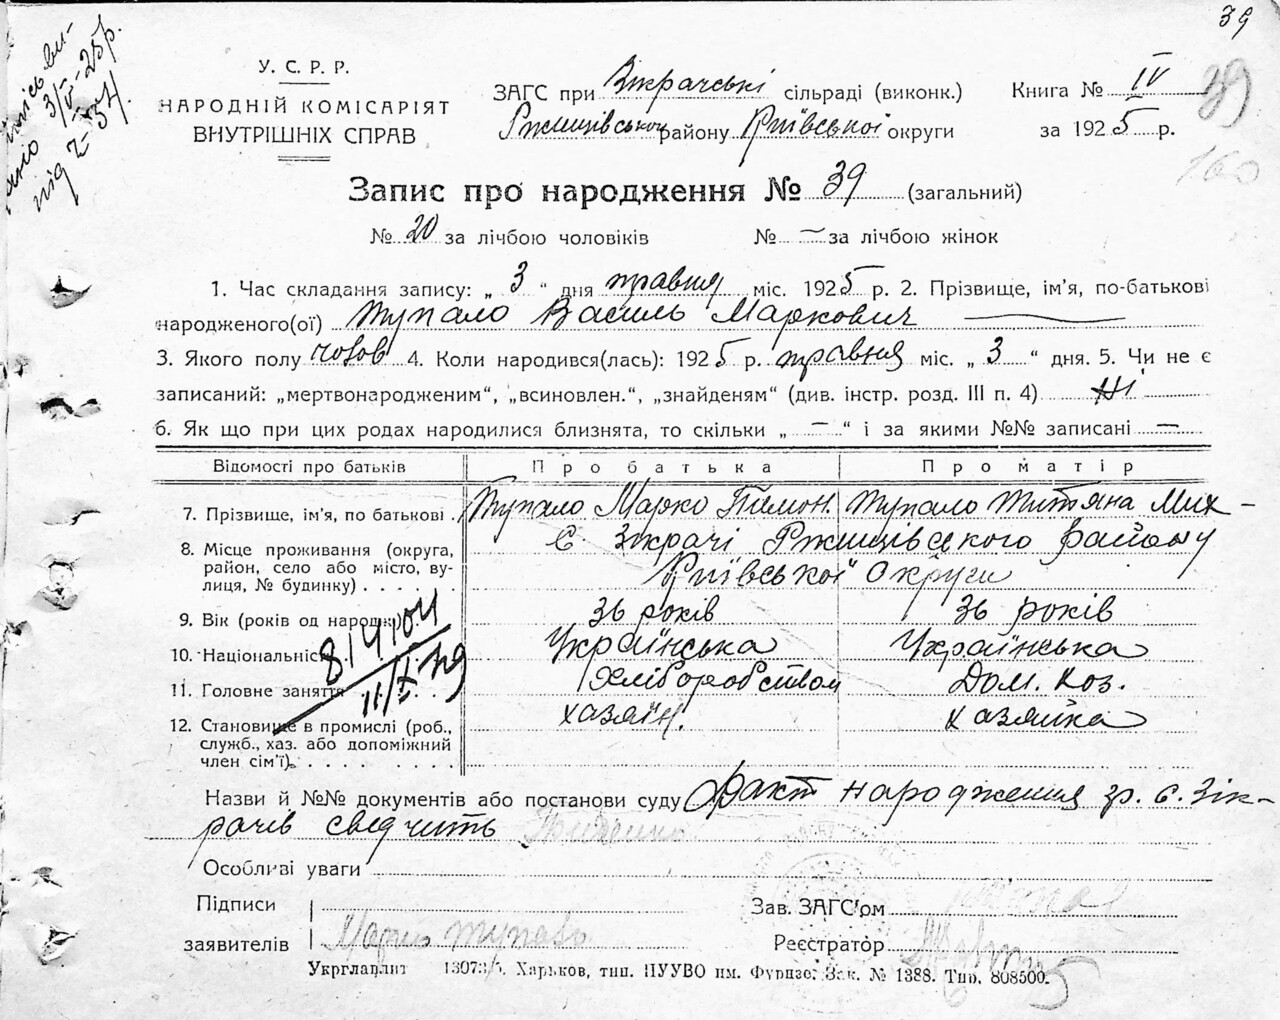 39
3/V-25р.
У. С. Р. Р.
НАРОДНІЙ КОМІСАРІЯТ
ВНУТРІШНІХ СПРАВ
ЗАГС при Зікрачські сільраді (виконк.) Книга № IV
Ржищівськог району Київської округи за 1925 р.
39
160
Запис про народження № 39 (загальний)
№ 20 за лічбою чоловіків № — за лічбою жінок
1. Час складання запису: „ 3 “ дня травня міс. 1925 р. 2. Прізвище, ім’я, по-батькові
народженого(ої) Тупало Василь Маркович
3. Якого полу чолов 4. Коли народився(лась): 1925 р. травня міс. „ 3 “ дня. 5. Чи не є
записаний: „мертвонародженим“, „всиновлен.“, „знайденям“ (див. інстр. розд. III п. 4) Ні
6. Як що при цих родах народилися близнята, то скільки „ — “ і за якими №№ записані —
Відомості про батьків Про батька Про матір
7. Прізвище, ім’я, по батькові . Тупало Марко Тимон. Тупало Титяна Мих-
8. Місце проживання (округа, район, село або місто, вулиця, № будинку) . . . . . . с. Зікрачі Ржищівського району
Київської Округи
9. Вік (років од народж 36 років 36 років
10. Національніст Українська Українська
11. Головне заняття . . . Хліборобством Дом. Хоз.
12. Становище в промислі (роб., хазяїн. хазяйка
служб., хаз. або допоміжний
член сім’ї) . . . . . . . .
814104
11/IX 79
Назви й №№ документів або постанови суду Факт народження гр. с. Зік-
рачів свідчить
Особливі уваги
Підписи
заявителів Марко Тупало
Зав. ЗАГС’ом
Реєстратор
Укрглавліт 13073/ Харьков, тип. ПУУВО им. Фрунзе. Зак. № 1388. Тир. 808500.
5